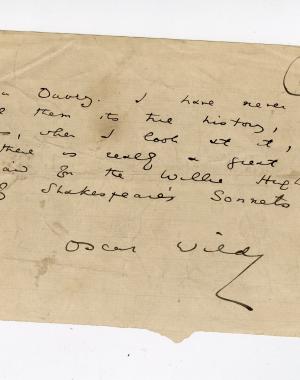 Dowdy. I have never
them its true history,
when I look at it,
there is really a great
for the Willie Hugh
Shakespeare's Sonnets
Oscar Wilde